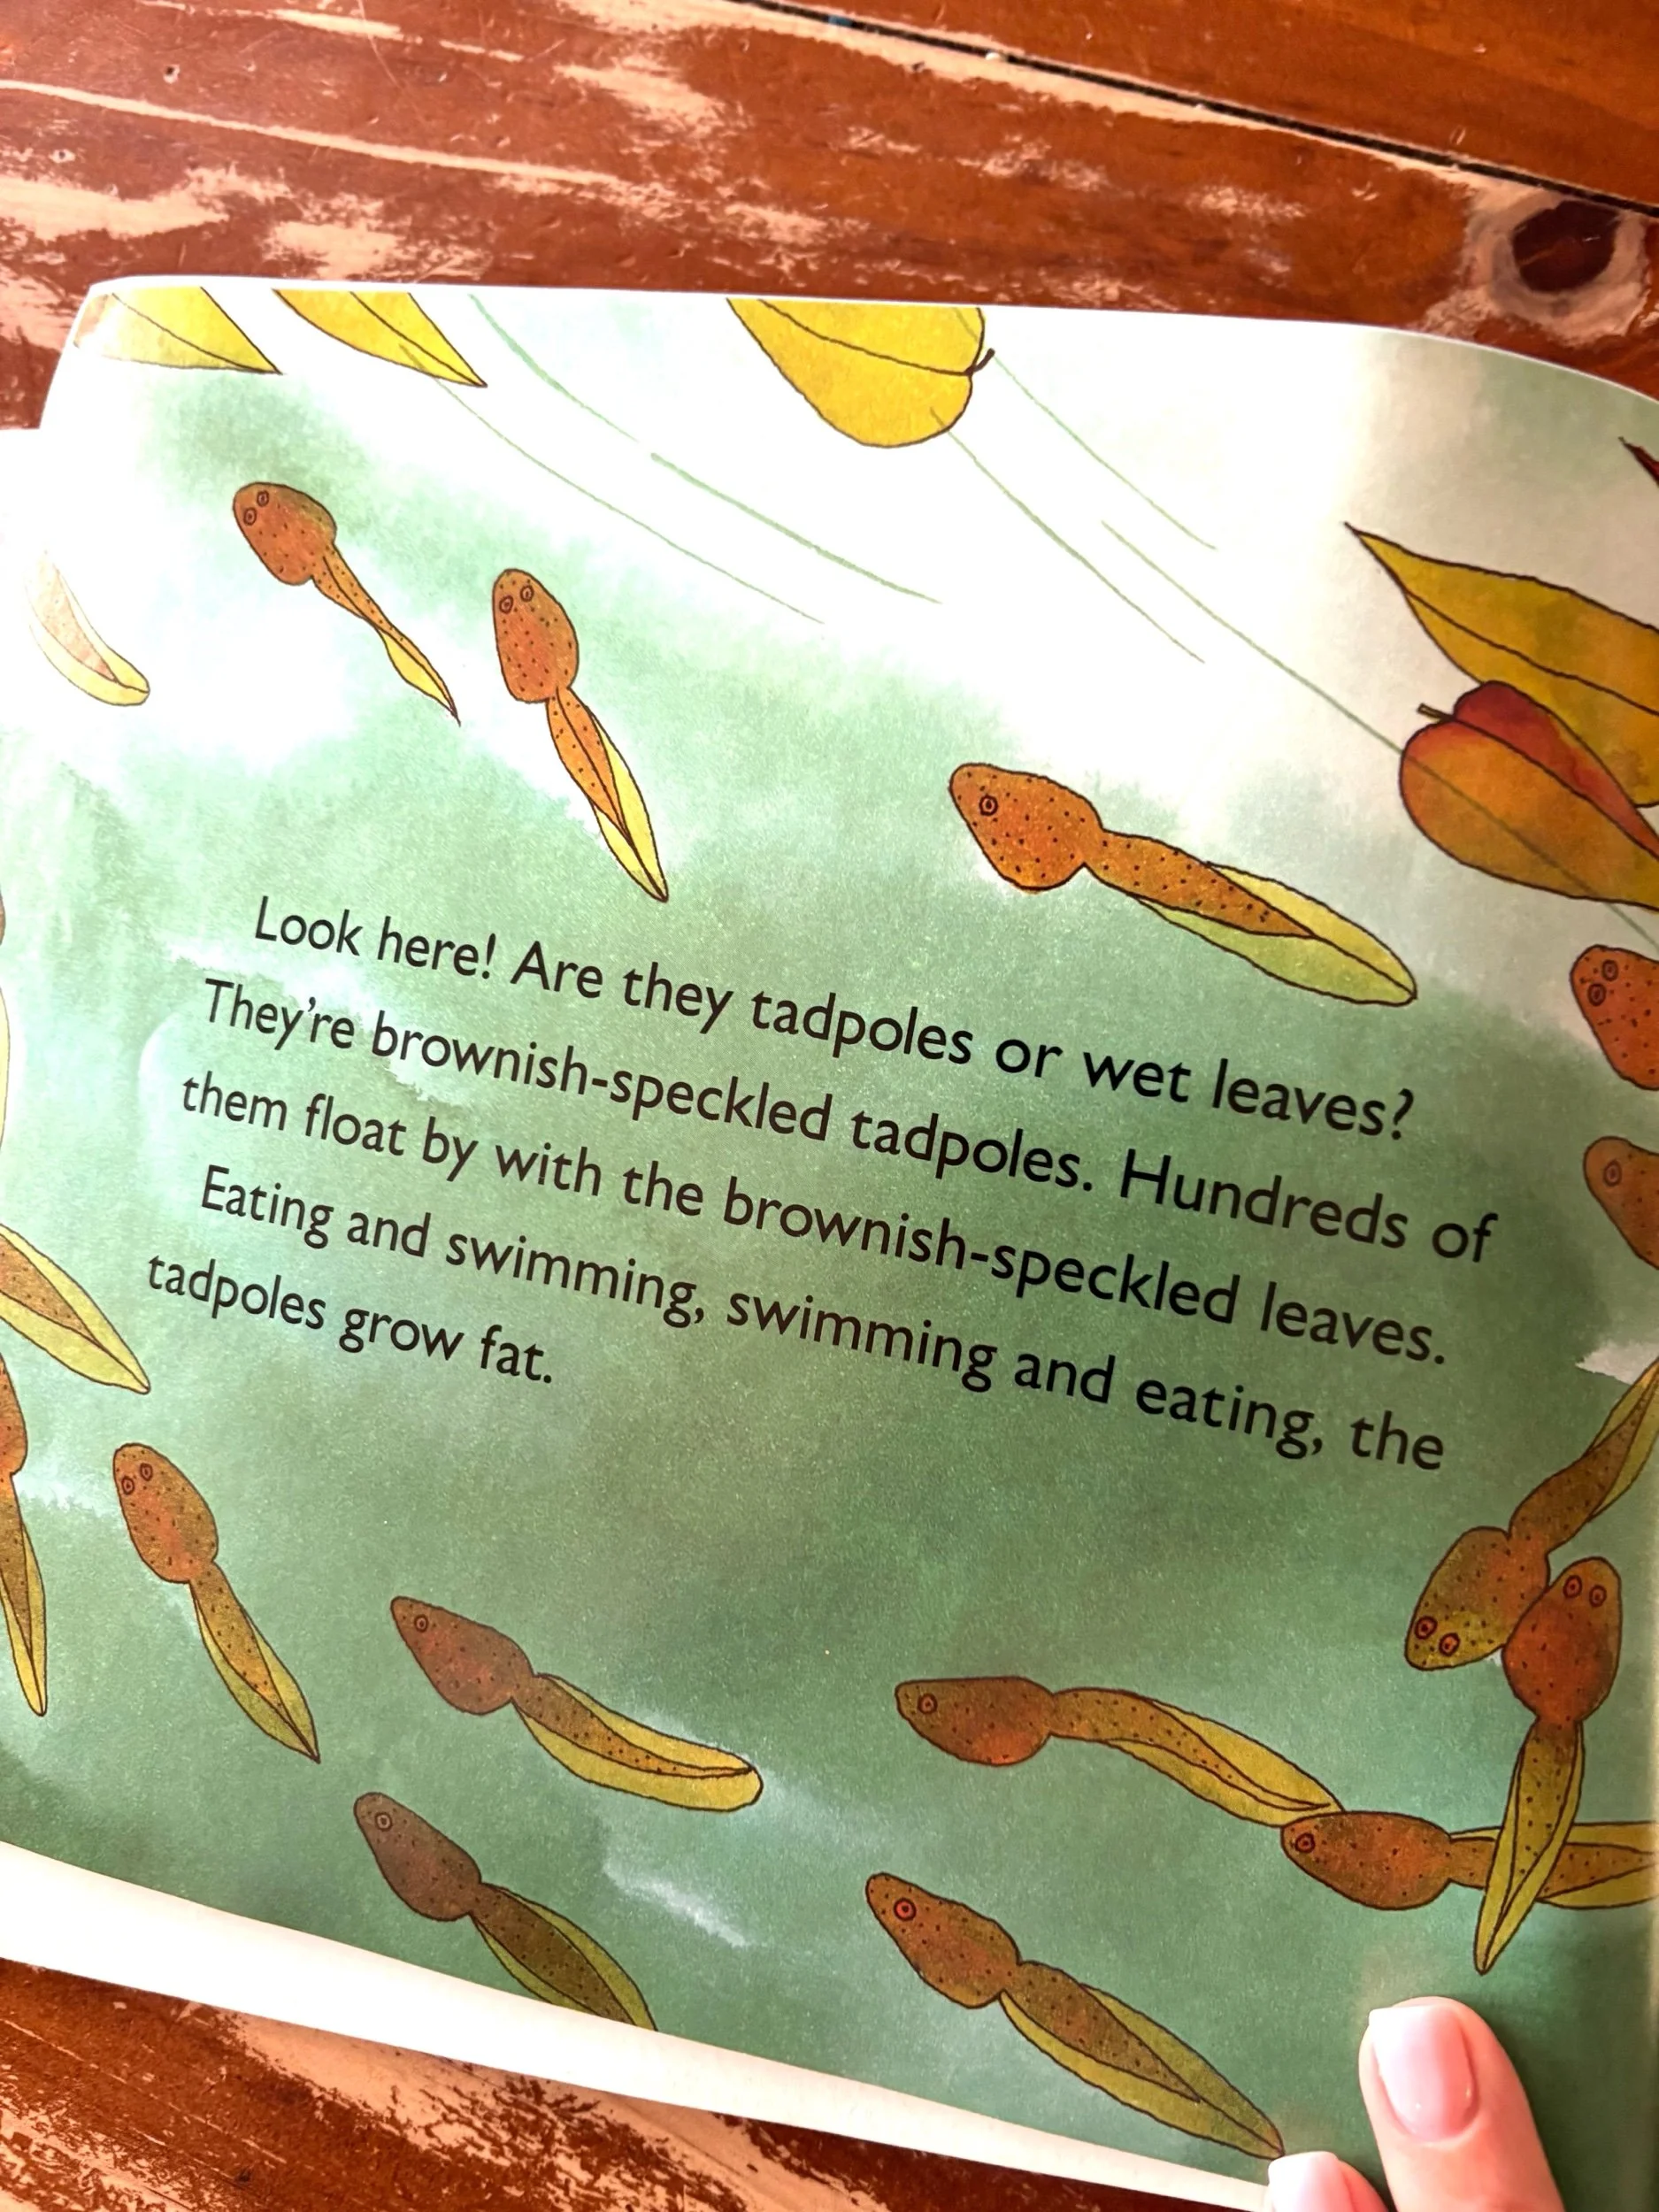 Look here! Are they tadpoles or wet leaves?
They're brownish-speckled tadpoles. Hundreds of
them float by with the brownish-speckled leaves.
Eating and swimming, swimming and eating, the
tadpoles grow fat.